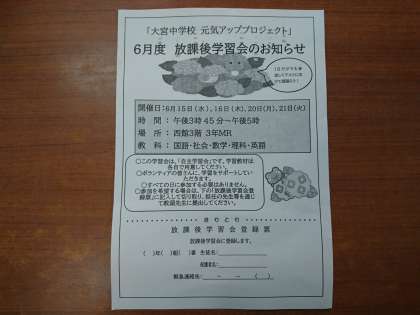 「大宮中学校 元気アッププロジェクト」
6月度 放課後学習会のお知らせ
開催日：6月15日(水)、16日(木)、20日(月)、21日(火)
時 間： 午後3時45分～午後5時
場 所： 西館3階 3年MR
教 科： 国語・社会・数学・理科・英語
○この学習会は、「自主学習会」です。学習教材は
各自で用意してください。
○ボランティアの皆さんに、学習をサポートしてい
ただきます。
○すべての日に参加する必要はありません。
○参加を希望する場合は、下の「放課後学習会登
録票」に記入して切り取り、担任の先生等を通じ
て教頭先生に提出してください。
きりとり
放課後学習会登録票
放課後学習会に登録します。
( )年( )組( )番 生徒名:
保護者名:
緊急連絡先: － － ( )